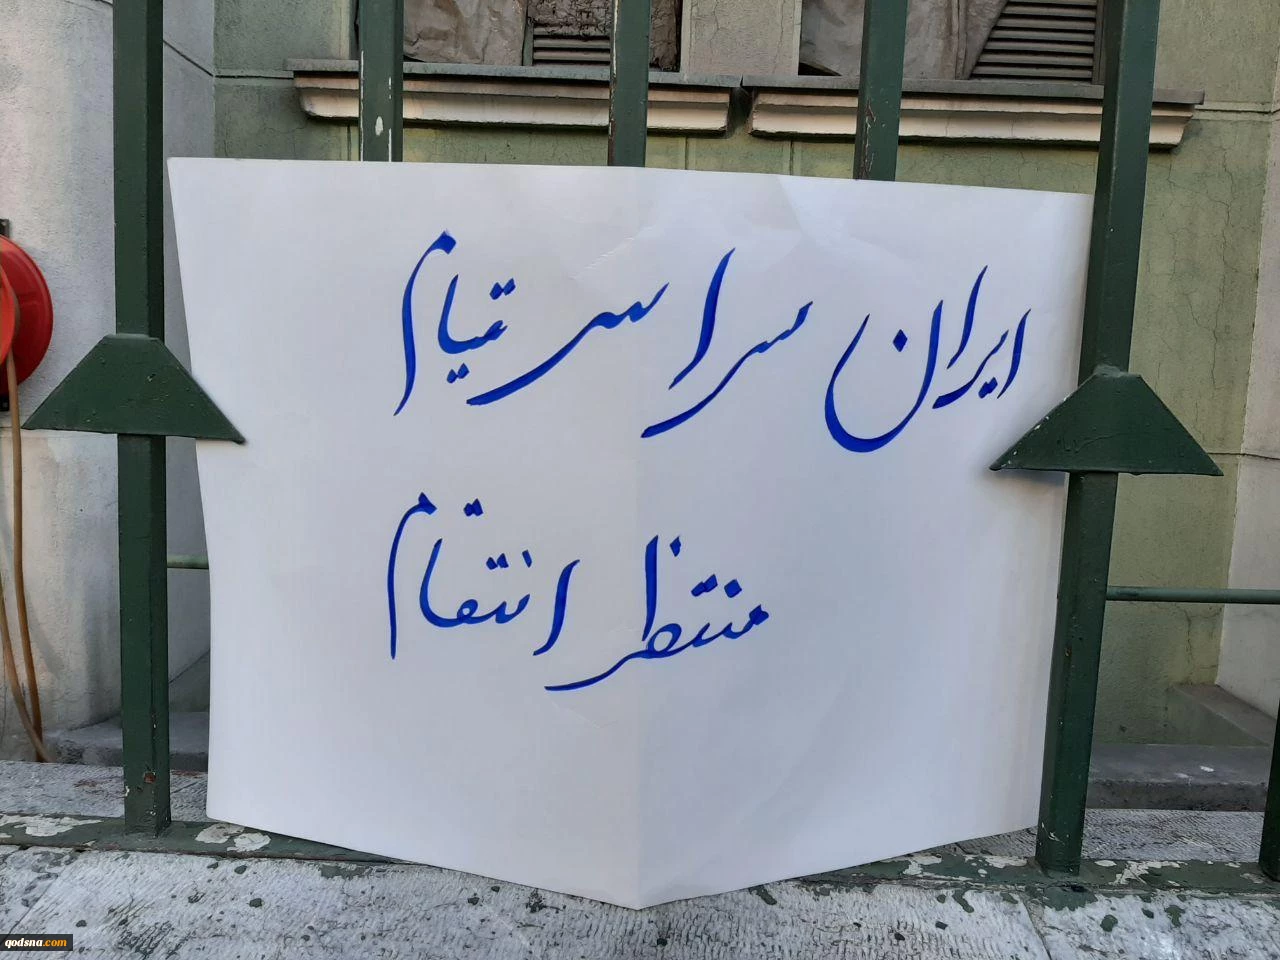 ایران سراسر قیام
منتظر انتقام
qodsna.com